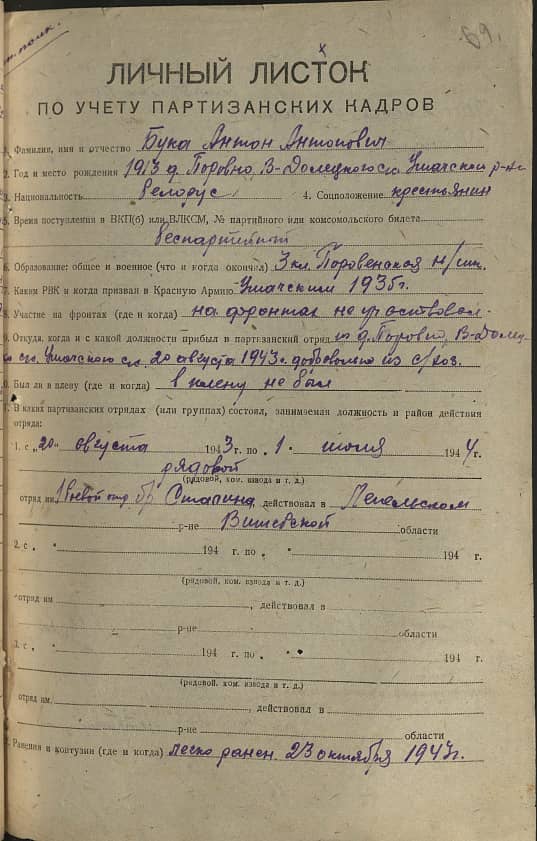 69.
ЛИЧНЫЙ ЛИСТОК
ПО УЧЕТУ ПАРТИЗАНСКИХ КАДРОВ
1. Фамилия, имя и отчество Бука Антон Антонович
2. Год и место рождения 1913 д. Поровно, В-Долецкого с/с Ушачский р-н
3. Национальность белорус 4. Соцположение крестьянин
5. Время поступления в ВКП(б) или ВЛКСМ, № партийного или комсомольского билета
беспартейный
6. Образование: общее и военное (что и когда окончил) 3 кл. Поровенская н/шк.
7. Каким РВК и когда призван в Красную Армию Ушачским 1935 г.
8. Участие на фронтах (где и когда) на фронтах не участвовал
9. Откуда, когда и с какой должности прибыл в партизанский отряд из д. Поровно, В-Долец-
20 августа 1943 г. добровольно из с/хоз.
10. Был ли в плену (где и когда) в плену не был
В каких партизанских отрядах (или группах) состоял, занимаемая должность и район действия
отряда:
1. с „20“ августа 1943 г. по „1 июля 1944 г.
рядовой
(рядовой, ком. взвода и т. д.)
отряд им. бр. Сталина, действовал в Лепельском
р-не Витебской области
2. с „ “ 194 г. по „ “ 194 г.
(рядовой, ком. взвода и т. д.)
отряд им , действовал в
р-не области
3. с „ “ 194 г. по „ “ 194 г.
(рядовой, ком. взвода и т. д.)
отряд им. , действовал в
р-не области
Ранения и контузии (где и когда) легко ранен. 23 октября 1943 г.